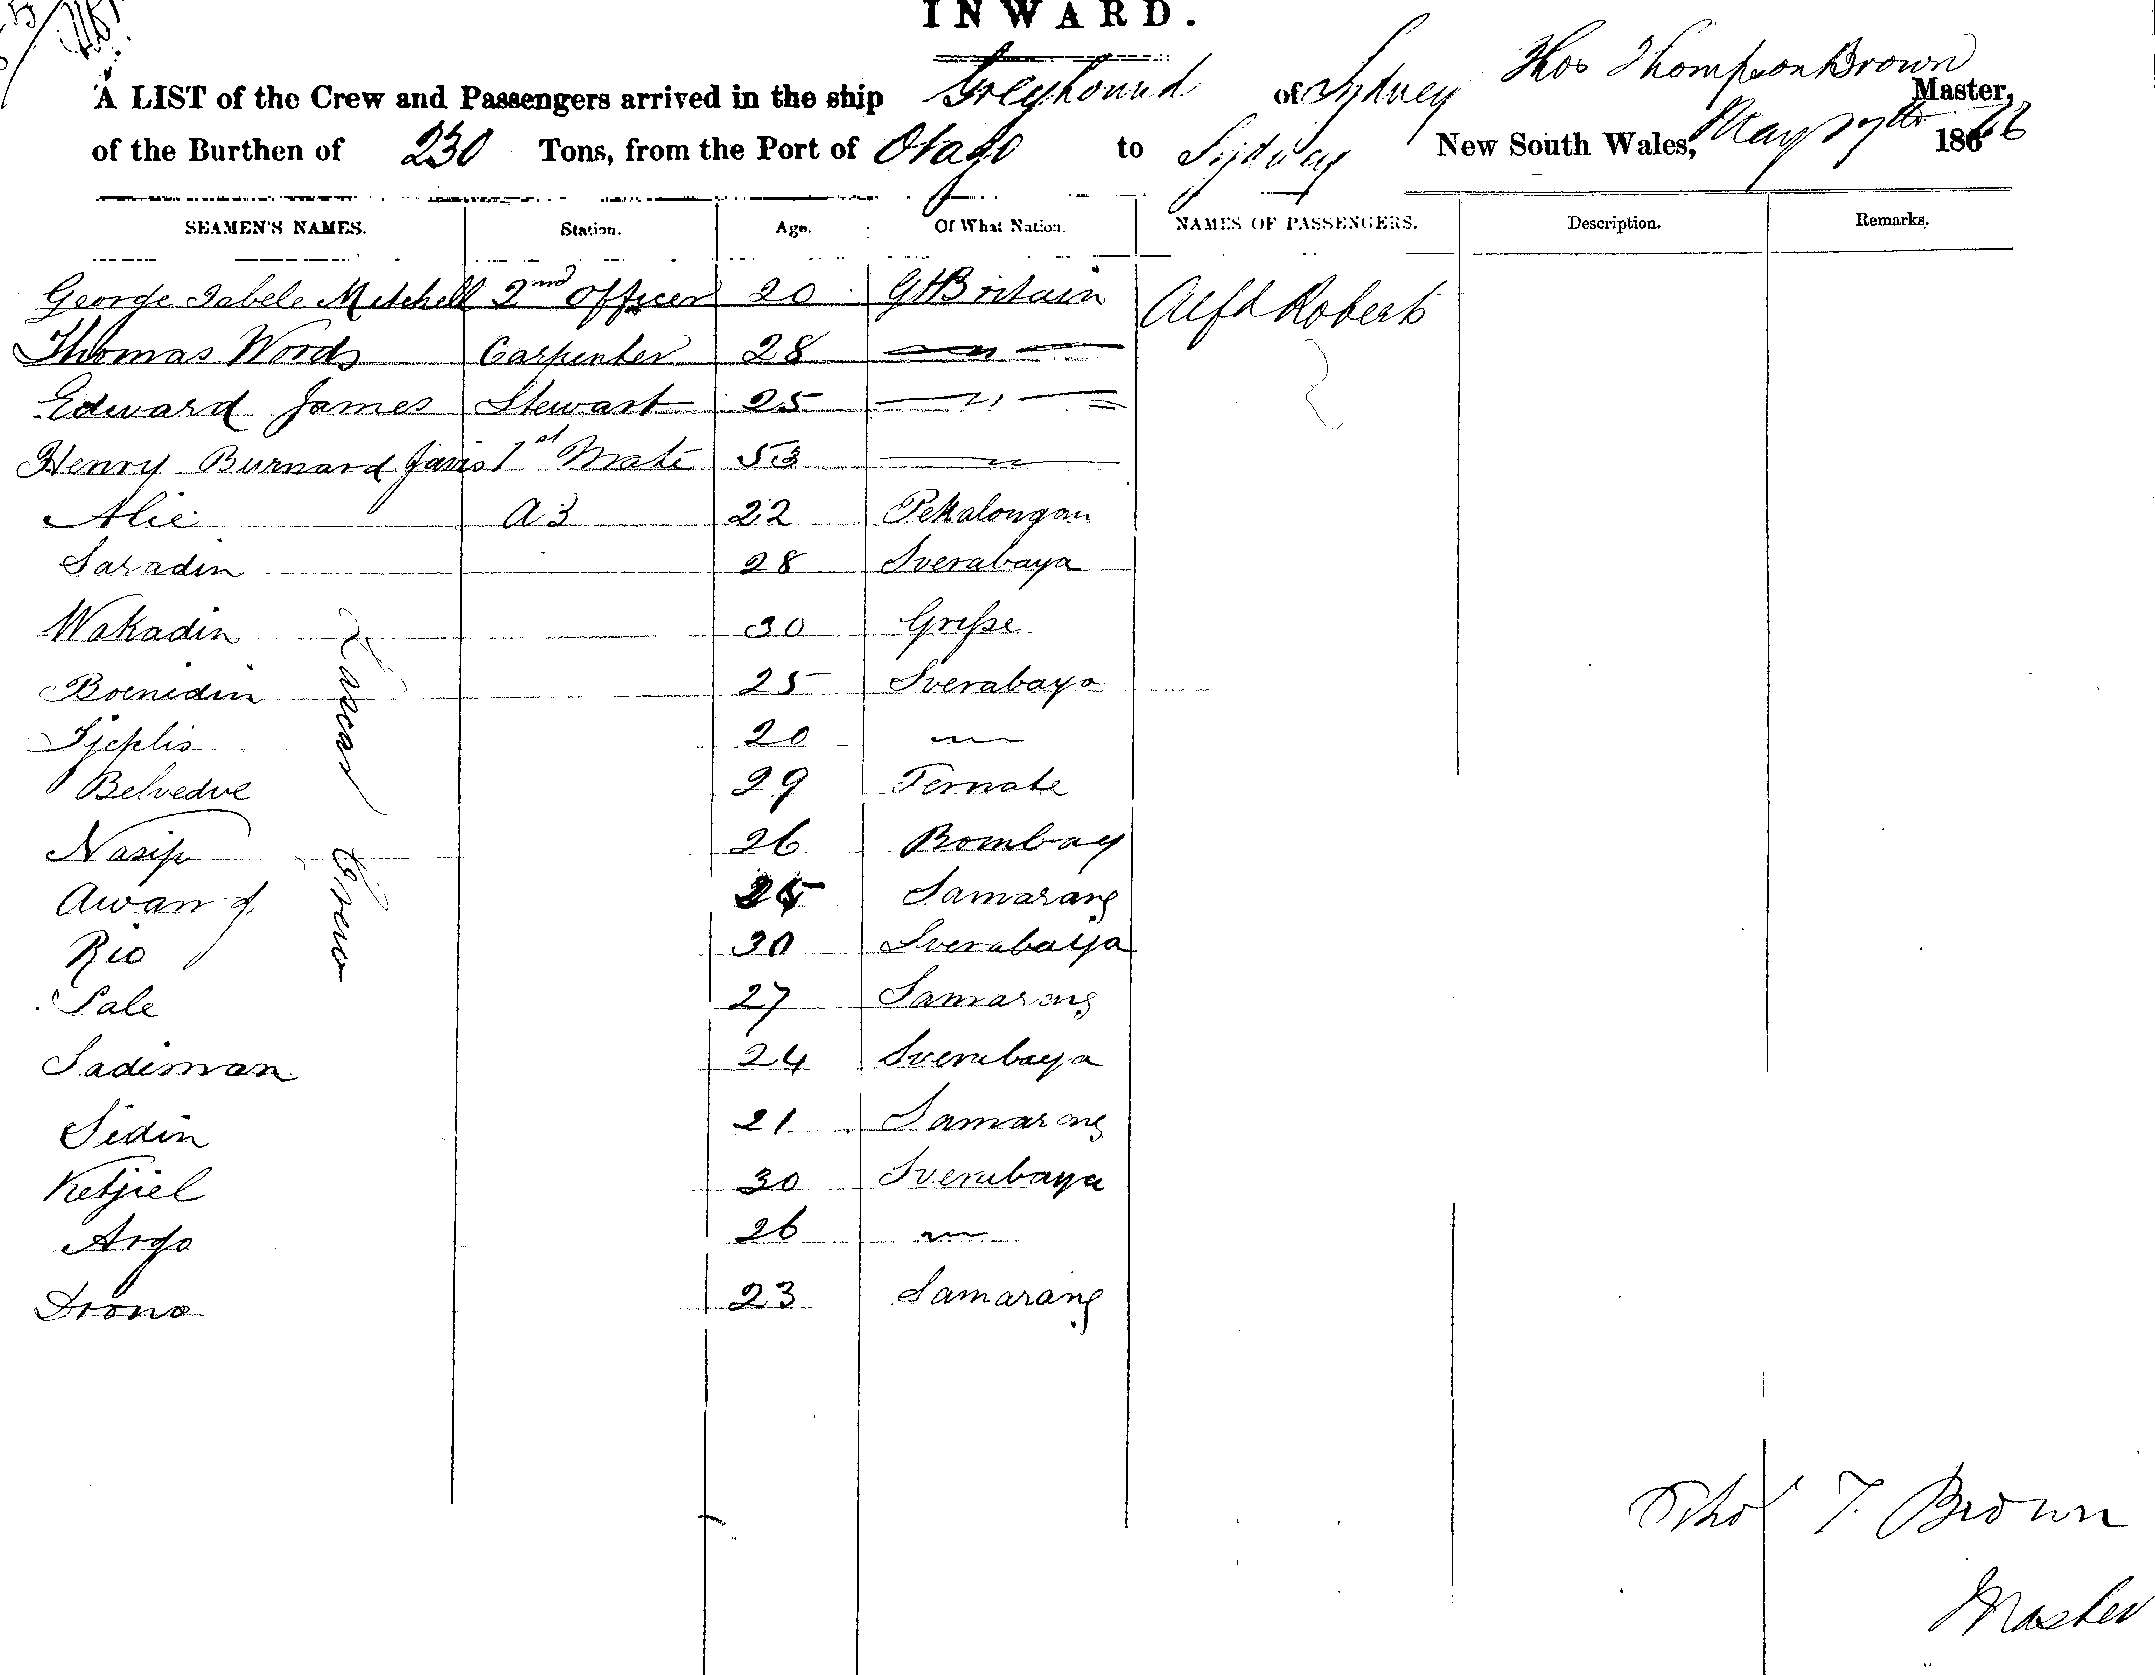 INWARD.
A LIST of the Crew and Passengers arrived in the ship Greyhound of Sydney Thos Thompson Brown Master,
of the Burthen of 230 Tons, from the Port of Otago to Sydney New South Wales, May 17th 186
SEAMEN'S NAMES. Station. Age. Of What Nation. NAMES OF PASSENGERS. Description. Remarks.
George Mitchell 2nd Officer 20 Gt Britain Alfd Roberts
Thomas Words Carpenter 28 — " —
Edward James Stewart 25 — " —
Henry Burnard Javis 1st Mate 53 — " —
Alie A3 22 Pekalongan
Saradin 28 Sverabaya
Wakadin 30 Grisse
Boenidin 25 Sverabaya
20 — " —
Belvedve 29 Ternate
Nasip 26 Bombay
Awang 25 Samarang
Rio 30 Sverabaya
Sale 27 Samarang
Sadiman 24 Sverabaya
Sidin 21 Samarang
Ketjiel 30 Sverabaya
Argo 26 — " —
Drono 23 Samarang
Lascar Crew
Thos T. Brown
Master